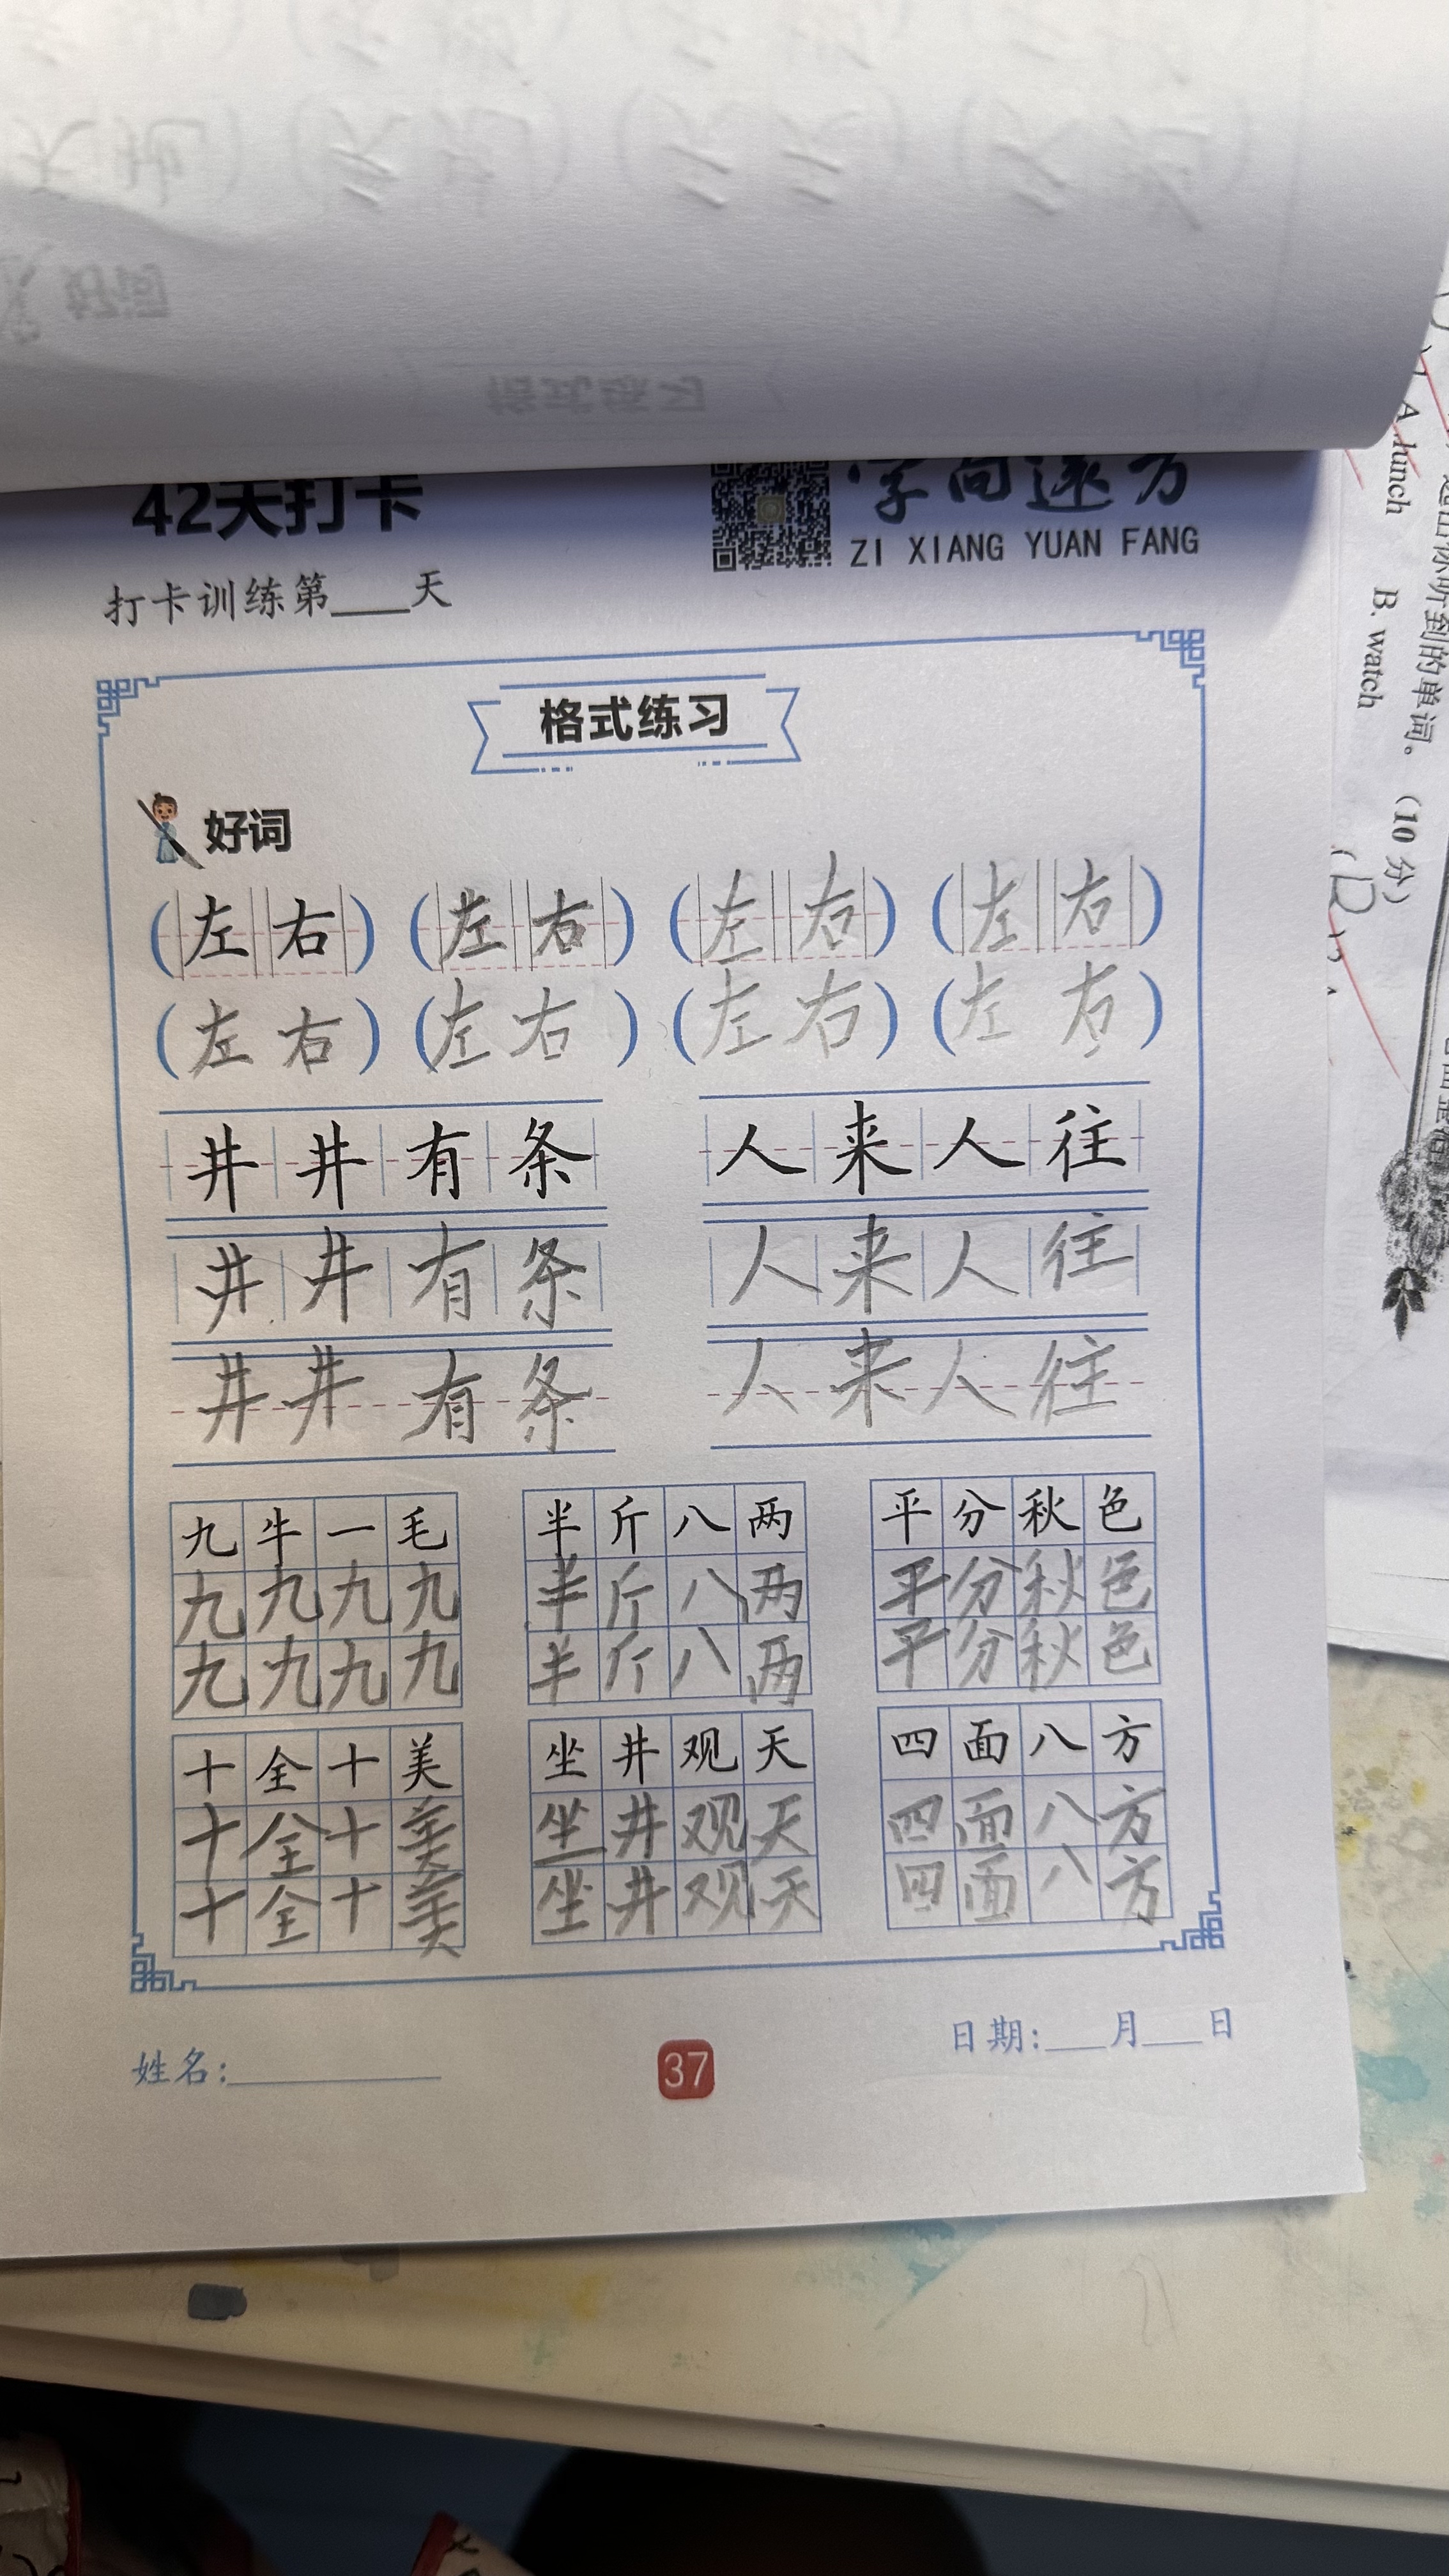 42天打卡
字向远方
ZI XIANG YUAN FANG
打卡训练第___天
格式练习
好词
(左右) (左右) (左右) (左右)
(左右) (左右) (左右) (左右)
井井有条 人来人往
井井有条 人来人往
井井有条 人来人往
九牛一毛 半斤八两 平分秋色
九九九九 半斤八两 平分秋色
九九九九 半斤八两 平分秋色
十全十美 坐井观天 四面八方
十全十美 坐井观天 四面八方
十全十美 坐井观天 四面八方
姓名:
37
日期:___月___日
听到的单词。(10分)
A. lunch
B. watch